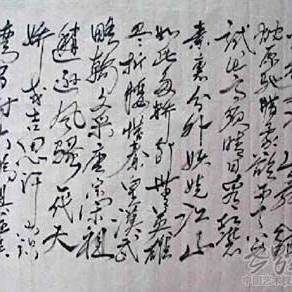 蛇原驰蜡象欲与天公
试比高须晴日看红装
素裹分外妖娆江山
如此多娇引无数英雄
竞折腰惜秦皇汉武
略输文采唐宗宋祖
稍逊风骚一代天
骄成吉思汗只识
弯弓射大雕俱往矣